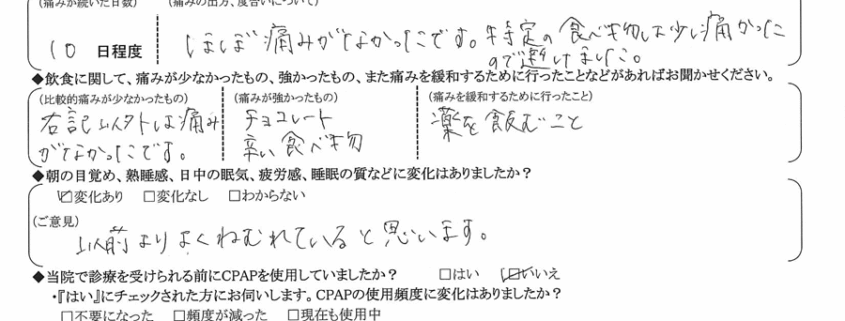 (痛みが続いた日数) (痛みの出方、度合いについて)
10 日程度 ほぼ痛みがなかったです。特定の食べ物は少し痛かった
ので避けました。
◆飲食に関して、痛みが少なかったもの、強かったもの、また痛みを緩和するために行ったことなどがあればお聞かせください。
(比較的痛みが少なかったもの) (痛みが強かったもの) (痛みを緩和するために行ったこと)
右記以外は痛み チョコレート 薬を飲むこと
がなかったです。 辛い食べ物
◆朝の目覚め、熟睡感、日中の眠気、疲労感、睡眠の質などに変化はありましたか?
☑変化あり □変化なし □わからない
(ご意見)
以前よりよくねむれていると思います。
◆当院で診療を受けられる前にCPAPを使用していましたか? □はい ☑いいえ
・『はい』にチェックされた方にお伺いします。CPAPの使用頻度に変化はありましたか?
□不要になった □頻度が減った □現在も使用中